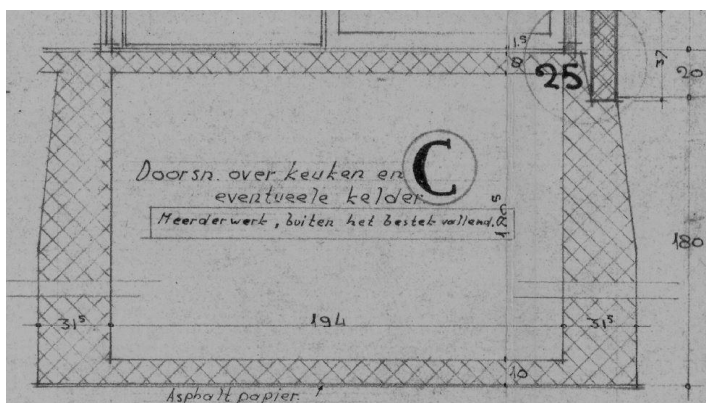 1.5
8
25
37
20
Doorsn. over keuken en
eventueele kelder
C
Meerderwerk, buiten het bestek vallend.
180
31⁵
194
31⁵
10
Asphalt papier.